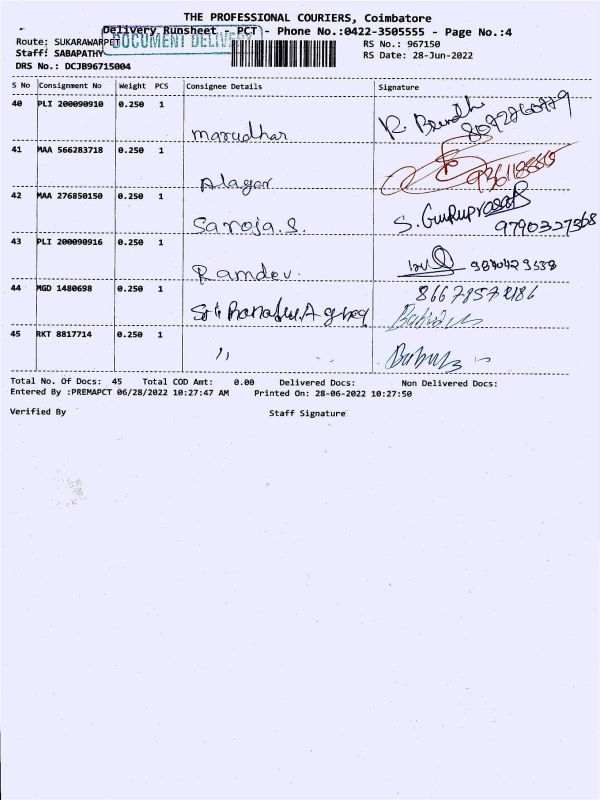 THE PROFESSIONAL COURIERS, Coimbatore
Delivery Runsheet - PCT - Phone No.:0422-3505555 - Page No.:4
Route: SUKARAWARPET
DOCUMENT DELIVERY
RS No.: 967150
Staff: SABAPATHY
RS Date: 28-Jun-2022
DRS No.: DCJB96715004
S No Consignment No Weight PCS Consignee Details Signature
40 PLI 200090910 0.250 1
marudhar
41 MAA 566283718 0.250 1
Alagar
42 MAA 276850150 0.250 1
Saroja.S. S. Guruprasad
9790327368
43 PLI 200090916 0.250 1
Ramdev.
44 MGD 1480698 0.250 1
Sri
45 RKT 8817714 0.250 1
,,
Total No. Of Docs: 45 Total COD Amt: 0.00 Delivered Docs: Non Delivered Docs:
Entered By :PREMAPCT 06/28/2022 10:27:47 AM Printed On: 28-06-2022 10:27:50
Verified By Staff Signature